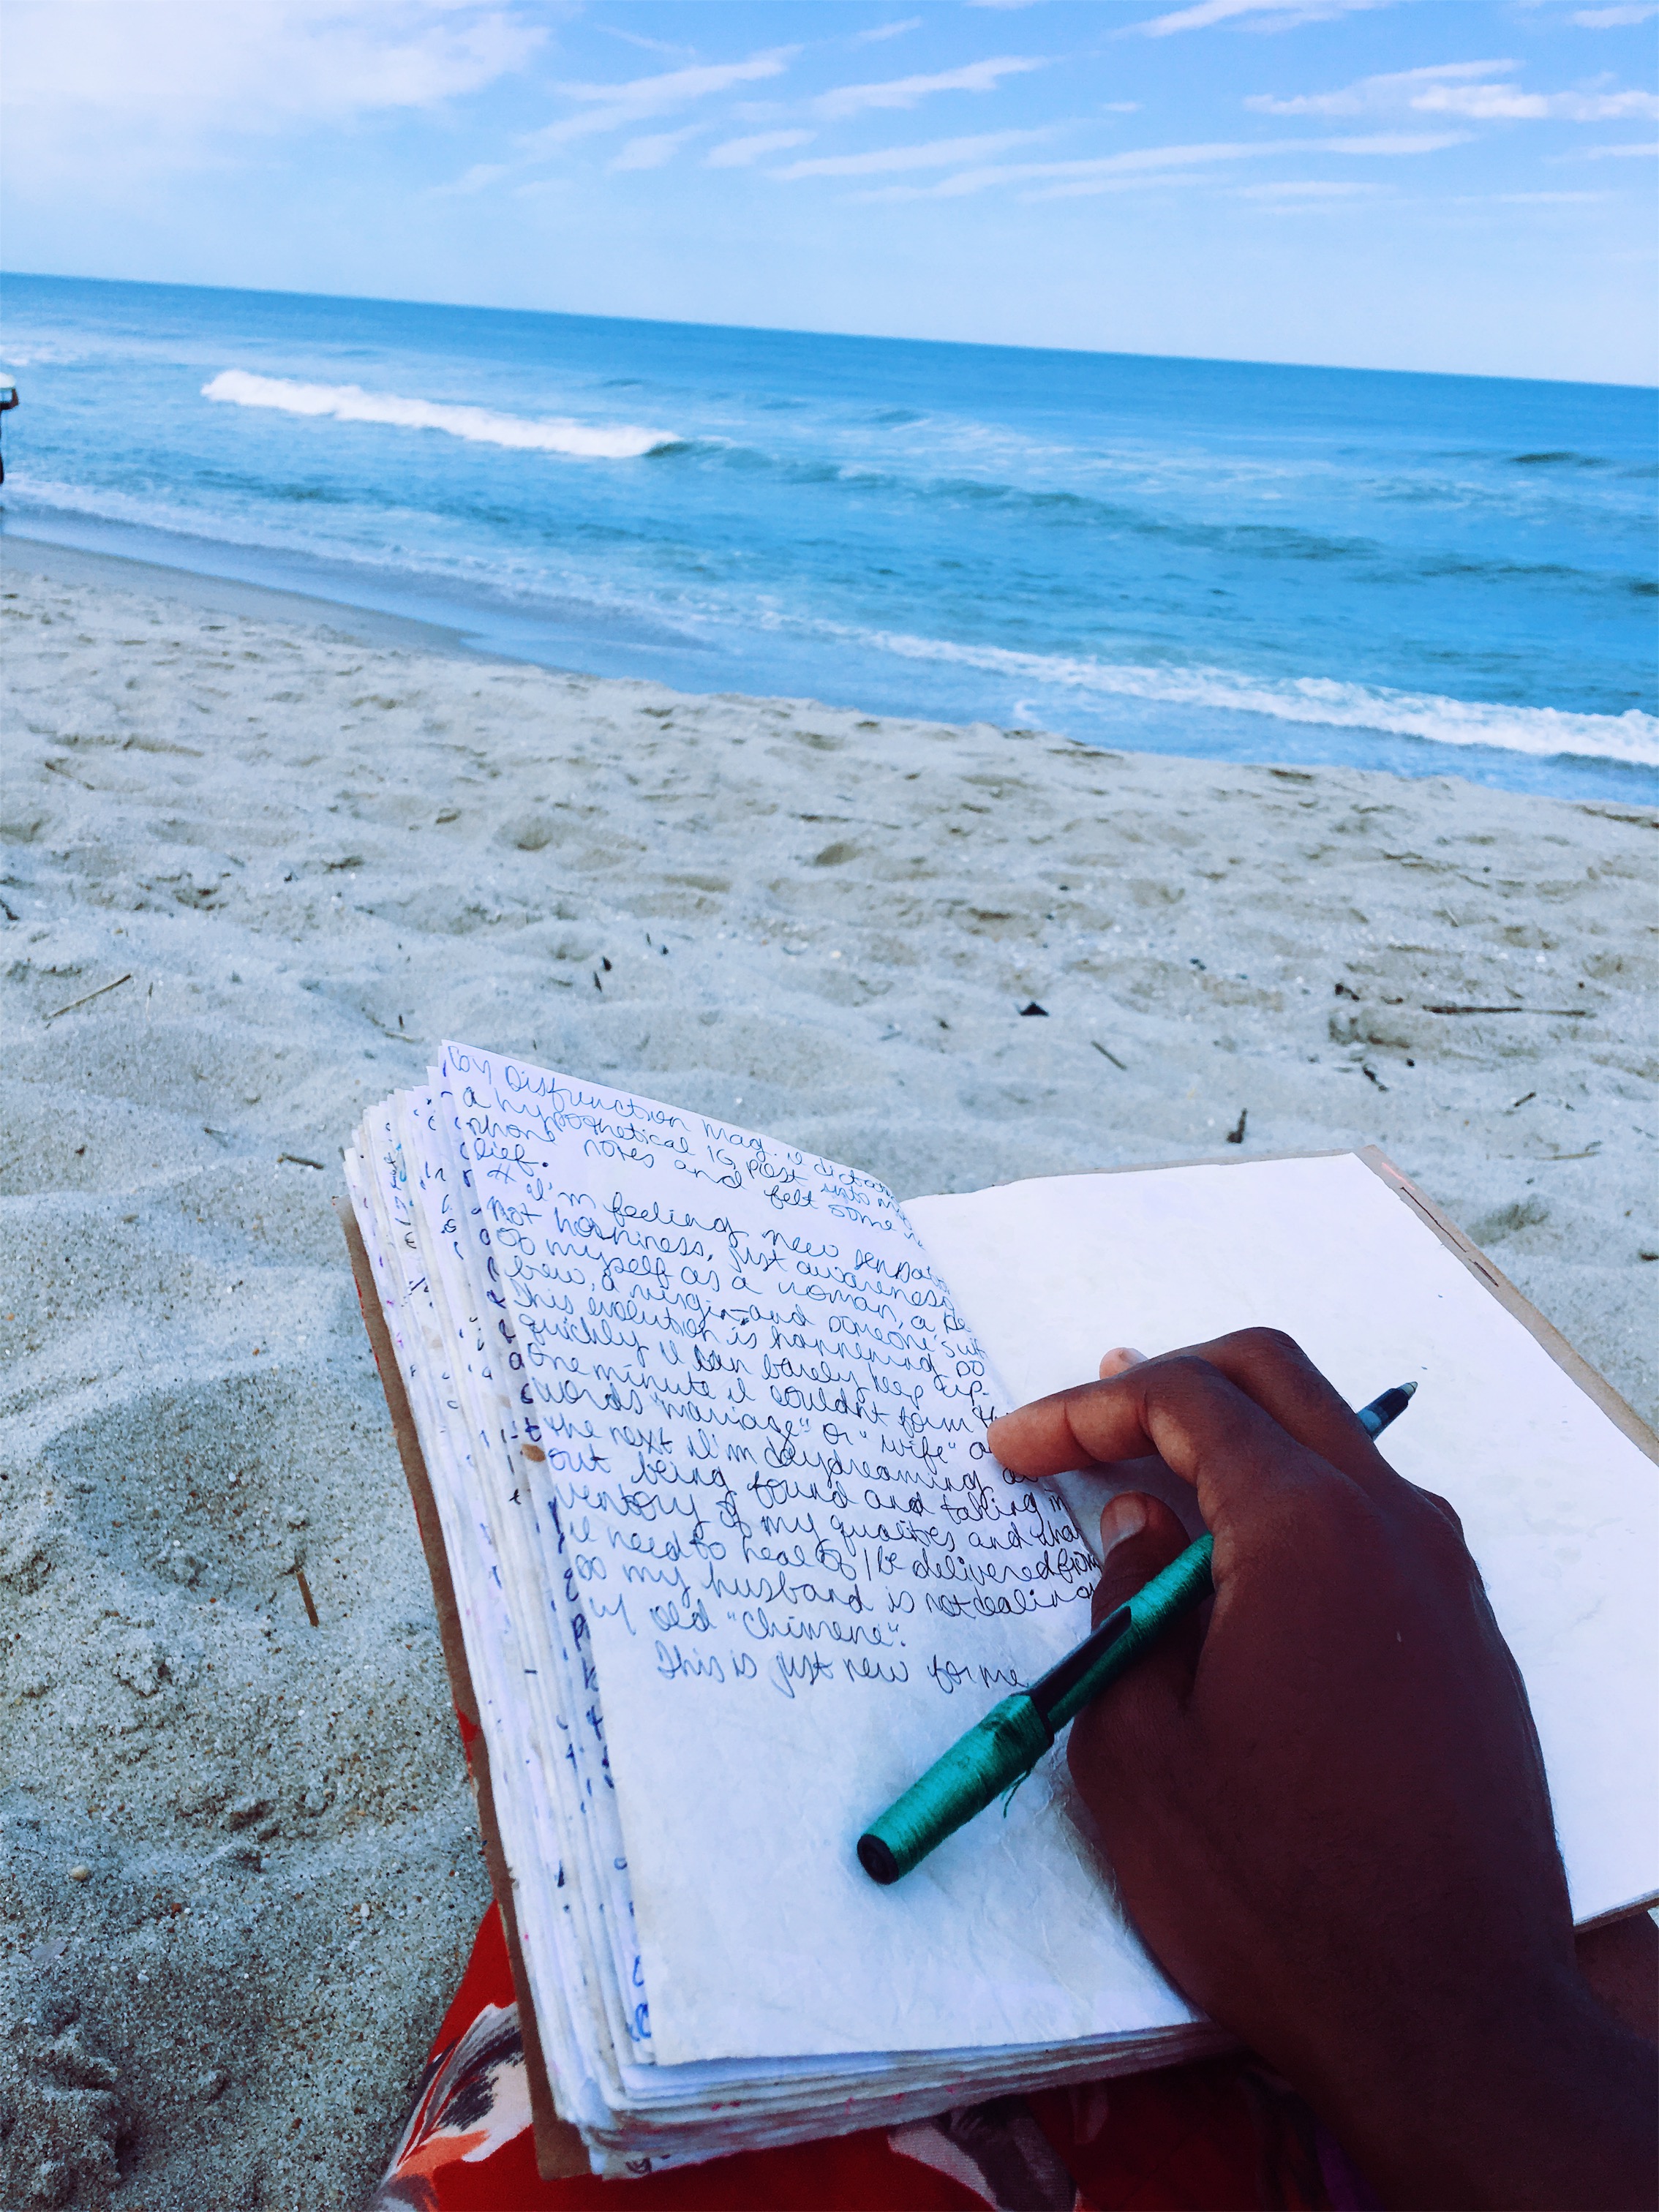 Disfunction Mag. I dictat
a hypothetical IG post into my
phone notes and felt some re
lief.
I'm feeling new sensat
not horniness, just awareness
of myself as a woman, a
a virgin and someone's
This evolution is happening so
quickly I can barely keep up.
One minute I couldn't form th
words "marriage" or "wife" a
the next I'm daydreaming ab
out being found and taking in
ventory of my qualities and what
I need to heal of / be delivered from
so my husband is not dealing
w/ old "Chimene".
This is just new for me